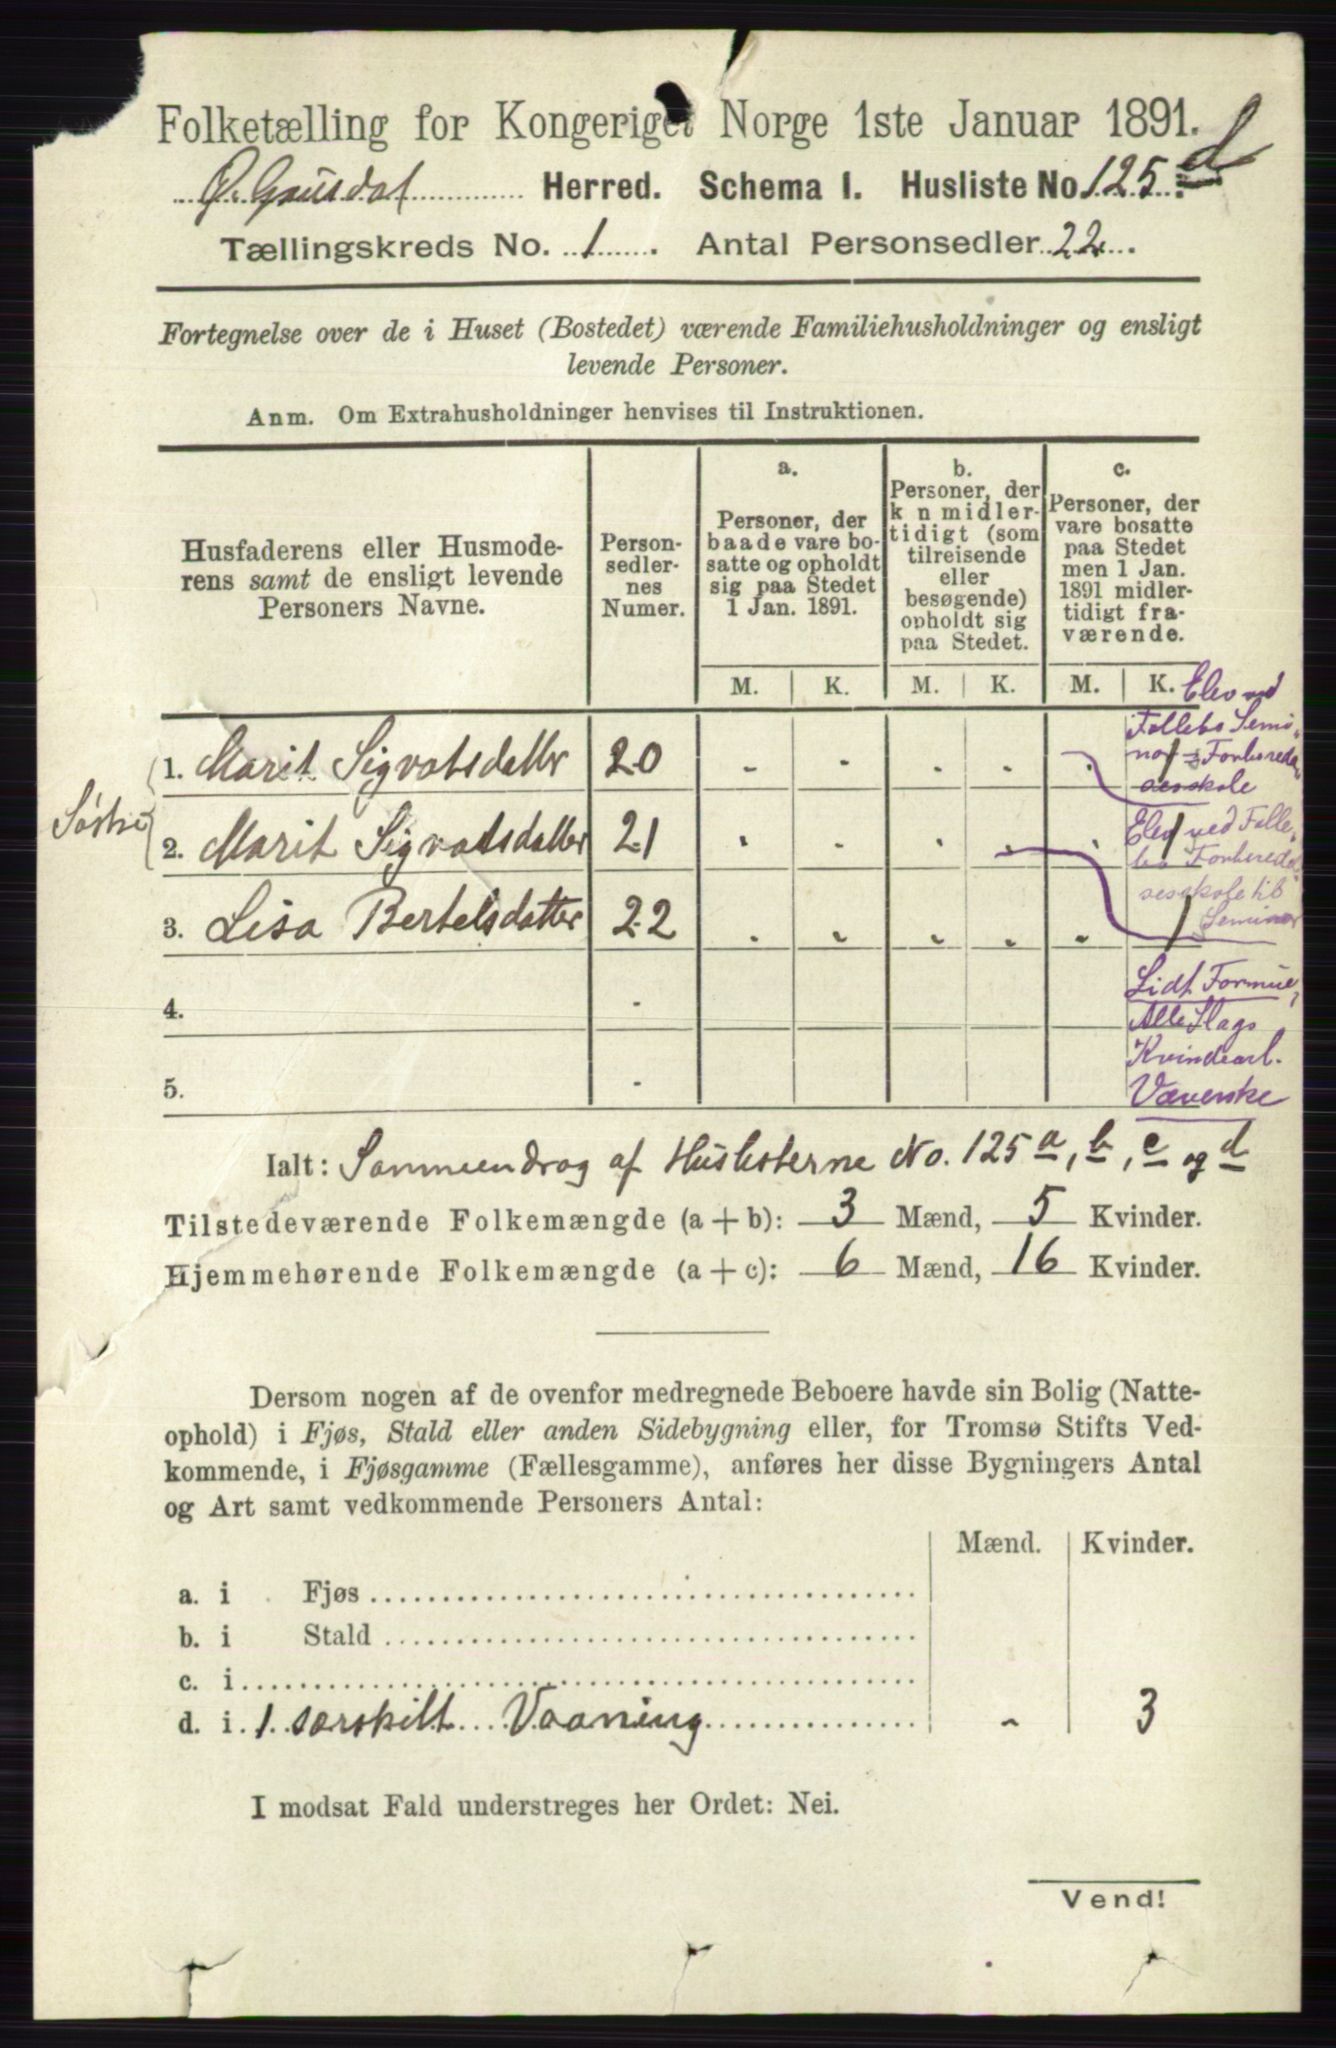 Folketælling for Kongeriget Norge 1ste Januar 1891.
Ø. Gausdal Herred. Schema I. Husliste No 125 d
Tællingskreds No. 1. Antal Personsedler 22.
Fortegnelse over de i Huset (Bostedet) værende Familiehusholdninger og ensligt
levende Personer.
Anm. Om Extrahusholdninger henvises til Instruktionen.
Husfaderens eller Husmode-
rens samt de ensligt levende
Personers Navne.
Person-
sedler-
nes
Numer.
a.
Personer, der
baade vare bo-
satte og opholdt
sig paa Stedet
1 Jan. 1891.
b.
Personer, der
k n midler-
tidigt (som
tilreisende
eller
besøgende)
opholdt sig
paa Stedet.
c.
Personer, der
vare bosatte
paa Stedet
men 1 Jan.
1891 midler-
tidigt fra-
værende.
M. K. M. K. M. K.
Elev ved
Follebo Semi-
nar=Forbered-
elsesskole
Søstre
1. Marit Sigvatsdatter 20 - - - - - 1
2. Marit Sigvatsdatter 21 - - - - - 1
Elev ved Folle-
bo Forbered-
sesskole til
Seminar
3. Lisa Bertelsdatter 22 - - - - - 1
Lidt Formue,
Alle Slags
Kvindearb.
Væverske
4. -
5. -
Ialt: Sammendrag af Huslisterne No. 125 a, b, c og d
Tilstedeværende Folkemængde (a + b): 3 Mænd, 5 Kvinder.
Hjemmehørende Folkemængde (a + c): 6 Mænd, 16 Kvinder.
Dersom nogen af de ovenfor medregnede Beboere havde sin Bolig (Natte-
ophold) i Fjøs, Stald eller anden Sidebygning eller, for Tromsø Stifts Ved-
kommende, i Fjøsgamme (Fællesgamme), anføres her disse Bygningers Antal
og Art samt vedkommende Personers Antal:
Mænd. Kvinder.
a. i Fjøs
b. i Stald
c. i
d. i 1 særskilt Vaaning - 3
I modsat Fald understreges her Ordet: Nei.
Vend!